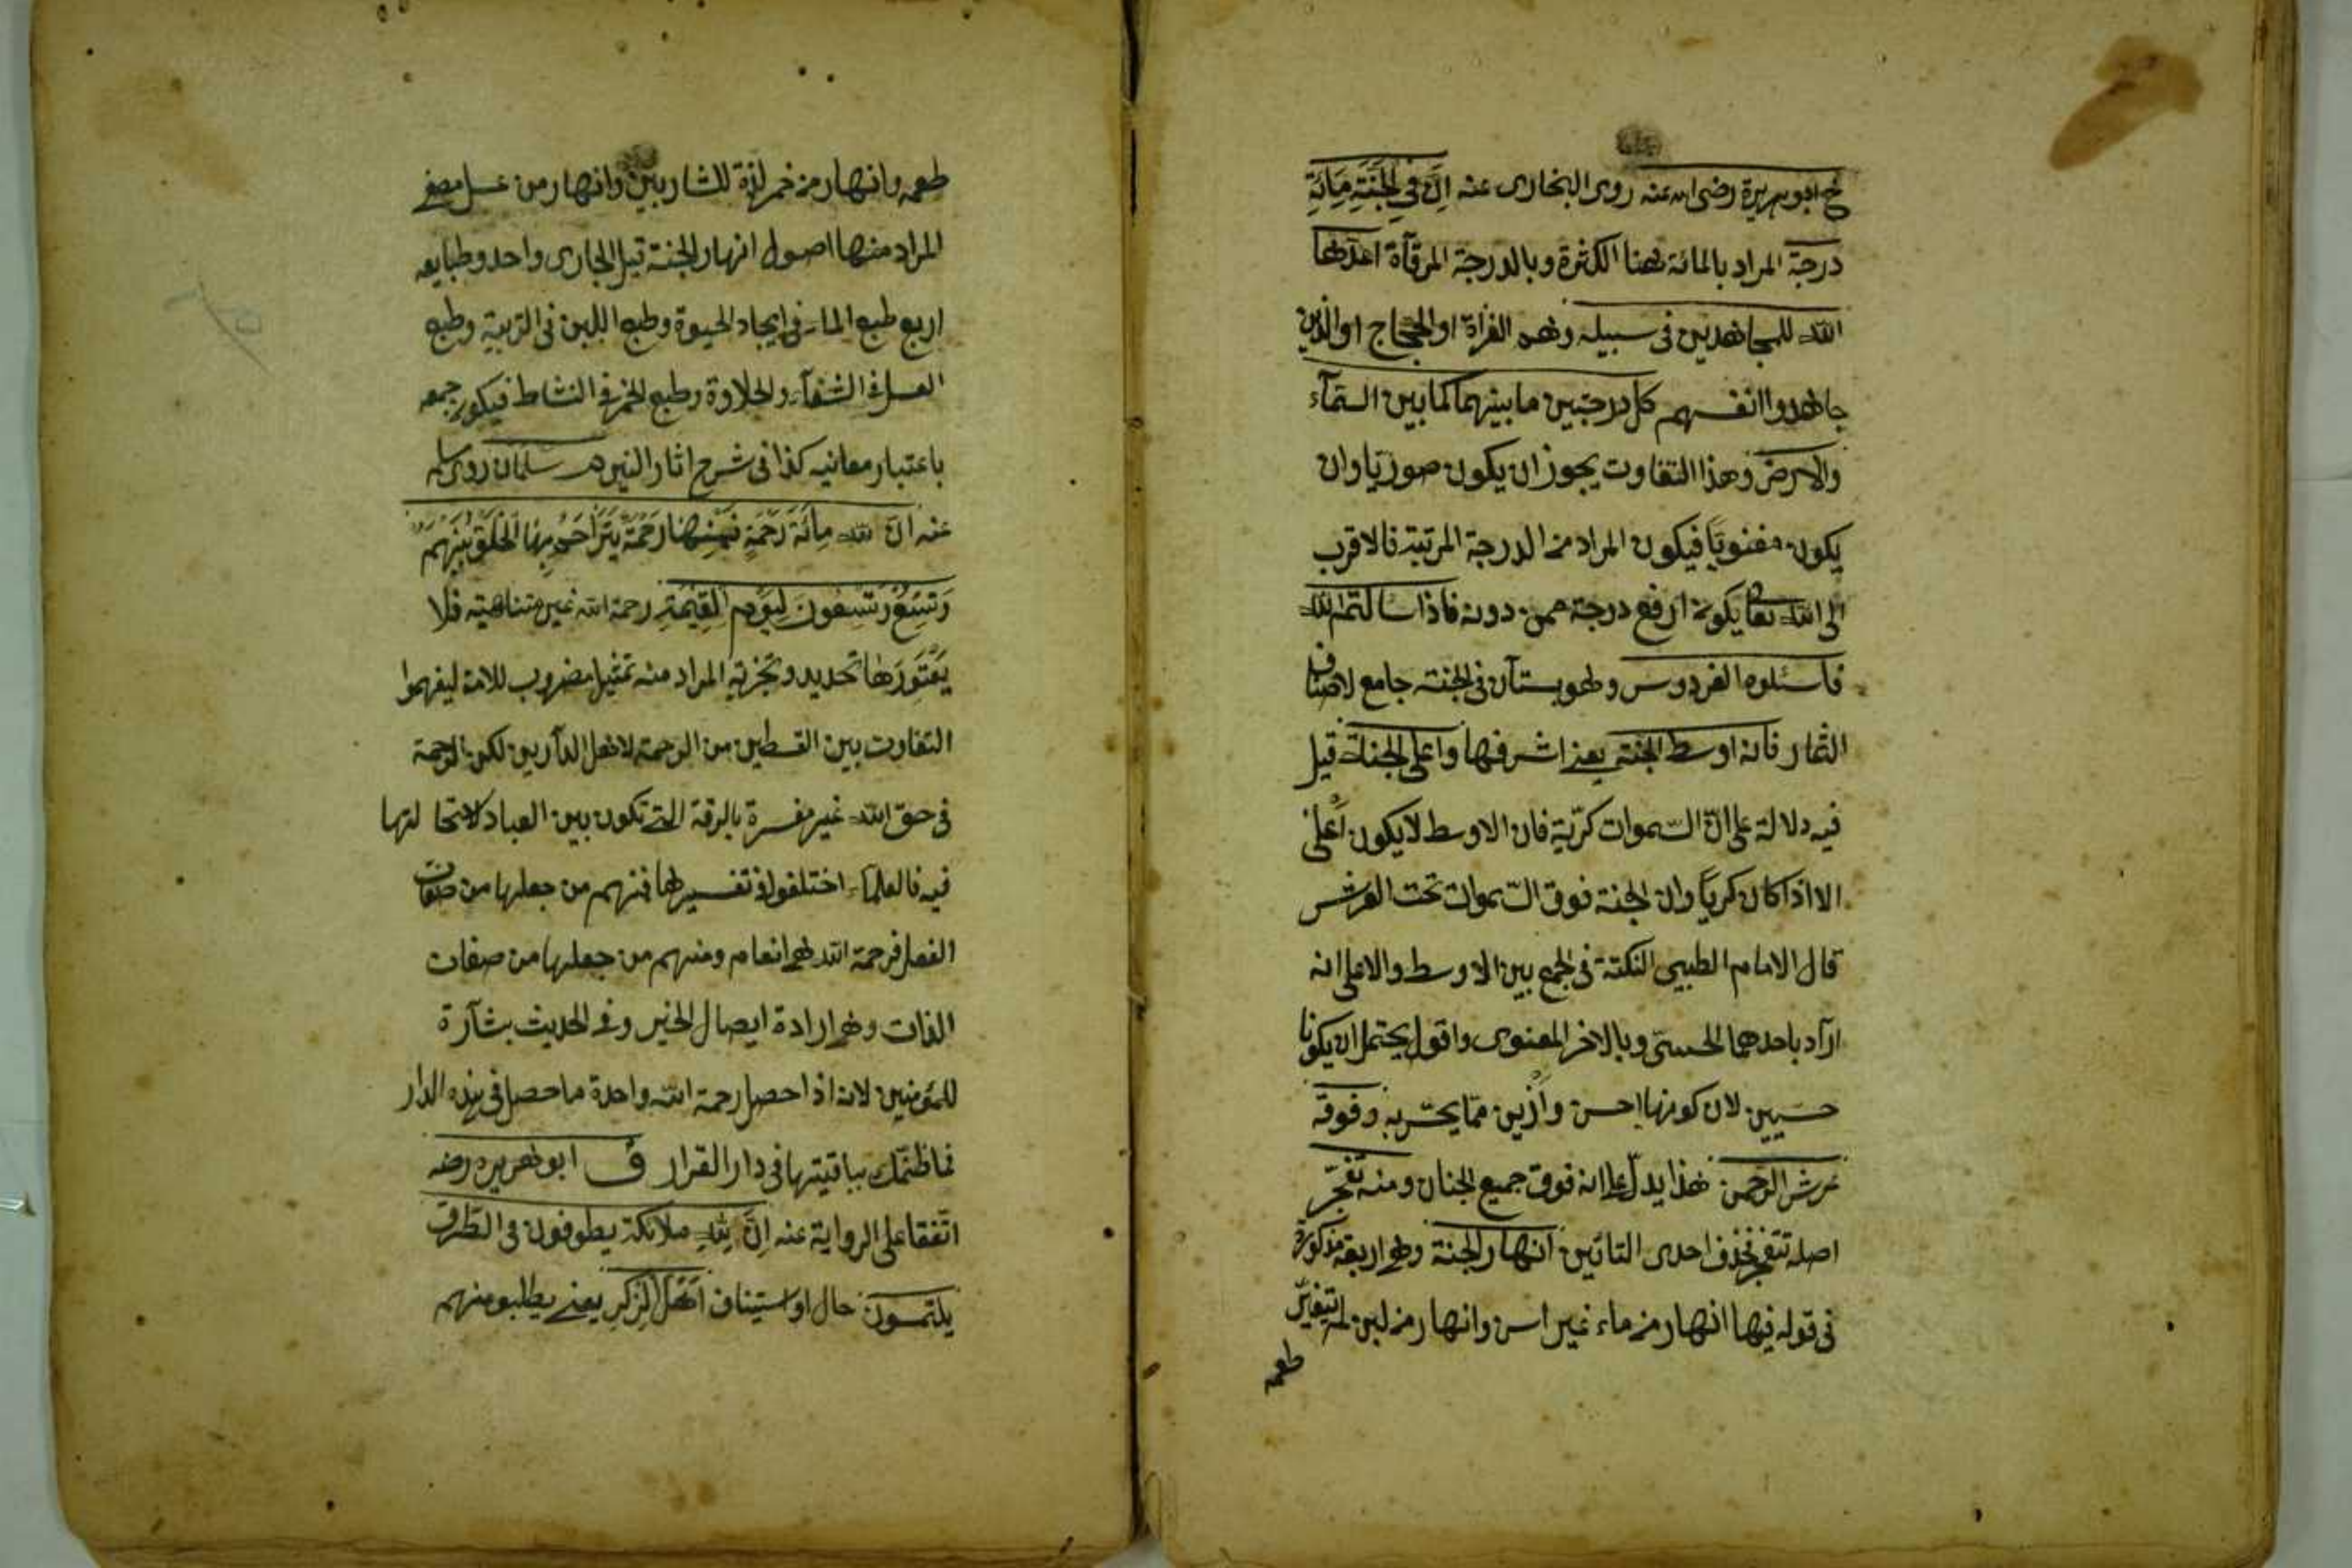 خ ابو هريرة رضى الله عنه روى البخارى عنه اِنَّ فِى الْجَنَّةِ مِائَةَ
درجة المراد بالمائة هنا الكثرة وبالدرجة المرقآة اعدّها
الله للمجاهدين فى سبيله وهم الغزاة او الحجاج او الذين
جاهدوا انفسهم كل درجتين ما بينهما كما بين السّمآء
والارض وهذا التفاوت يجوز ان يكون صوريّا وان
يكون معنويّا فيكون المراد من الدرجة المرتبة فالاقرب
الى الله تعا يكون ارفع درجة ممن دونه فاذا سالتم الله
فاسئلوه الفردوس وهو بستان فى الجنة جامع لاصناف
الثمار فانه اوسط الجنة يعنے اشرفها واعلى الجنة قيل
فيه دلالة على انّ السّموات كرّية فان الاوسط لا يكون اعلى
الا اذا كان كريّا وان الجنة فوق السّموات تحت العرش
قال الامام الطيبى النكتة فى الجمع بين الاوسط والاعلى انه
اراد باحدهما الحسىّ وبالاخر المعنوى واقول يحتمل ان يكونا
حسيين لان كونها احسن وازين ممّا يحسّ به وفوقه
عرش الرحمن هذا يدلّ على انه فوق جميع الجنان ومنه تفجّر
اصله تتفجر فحذف احدى التائين انهار الجنة وهى اربعة مذكورة
فى قوله فيها انهار من ماء غير اسن وانهار من لبن لم يتغيّر
طعمه
طعمه وانهار من خمر لذة للشاربين وانهار من عسل مصفى
المراد منها اصول انهار الجنة قيل الجارى واحد وطبايعه
اربع طبع الماء فى ايجاد الحيوة وطبع اللبن فى التربية وطبع
العسل فى الشفآء والحلاوة وطبع الخمر فى النشاط فيكون جمعه
باعتبار معانيه كذا فى شرح اثار النيرين م سلمان روى مسلم
عنه انّ لله مِائَةَ رَحْمَةٍ فَمِنْهَا رَحْمَةٌ يَتَرَاحَمُ بِهَا الْخَلْقُ بَيْنَهُمْ
وَتِسْعٌ وَتِسْعُونَ لِيَوْمِ الْقِيٰمَةِ رحمة الله غير متناهية فلا
يَعْتَوِرُهَا تحديد وتجزية المراد منه تمثيل مضروب للامة ليفهموا
التفاوت بين القسطين من الرحمة لاهل الدارين لكن الرحمة
فى حق الله غير مفسرة بالرقة التے تكون بين العباد لاستحالتها
فيه فالعلمآء اختلفوا فى تفسيرها فمنهم من جعلها من صفات
الفعل فرحمة الله هى انعام ومنهم من جعلها من صفات
الذات وهى ارادة ايصال الخير وفى الحديث بشآرة
للمؤمنين لانه اذا حصل رحمة الله واحدة ما حصل فى هذه الدار
فما ظنّك بباقيتها فى دار القرار ق ابو هريره رضه
اتّفقا على الرواية عنه اِنَّ لِلّٰهِ ملائكة يطوفون فى الطّرق
يلتمسون حال او استيناف اَهْلَ الذِّكْرِ يعنے يطلبو منهم